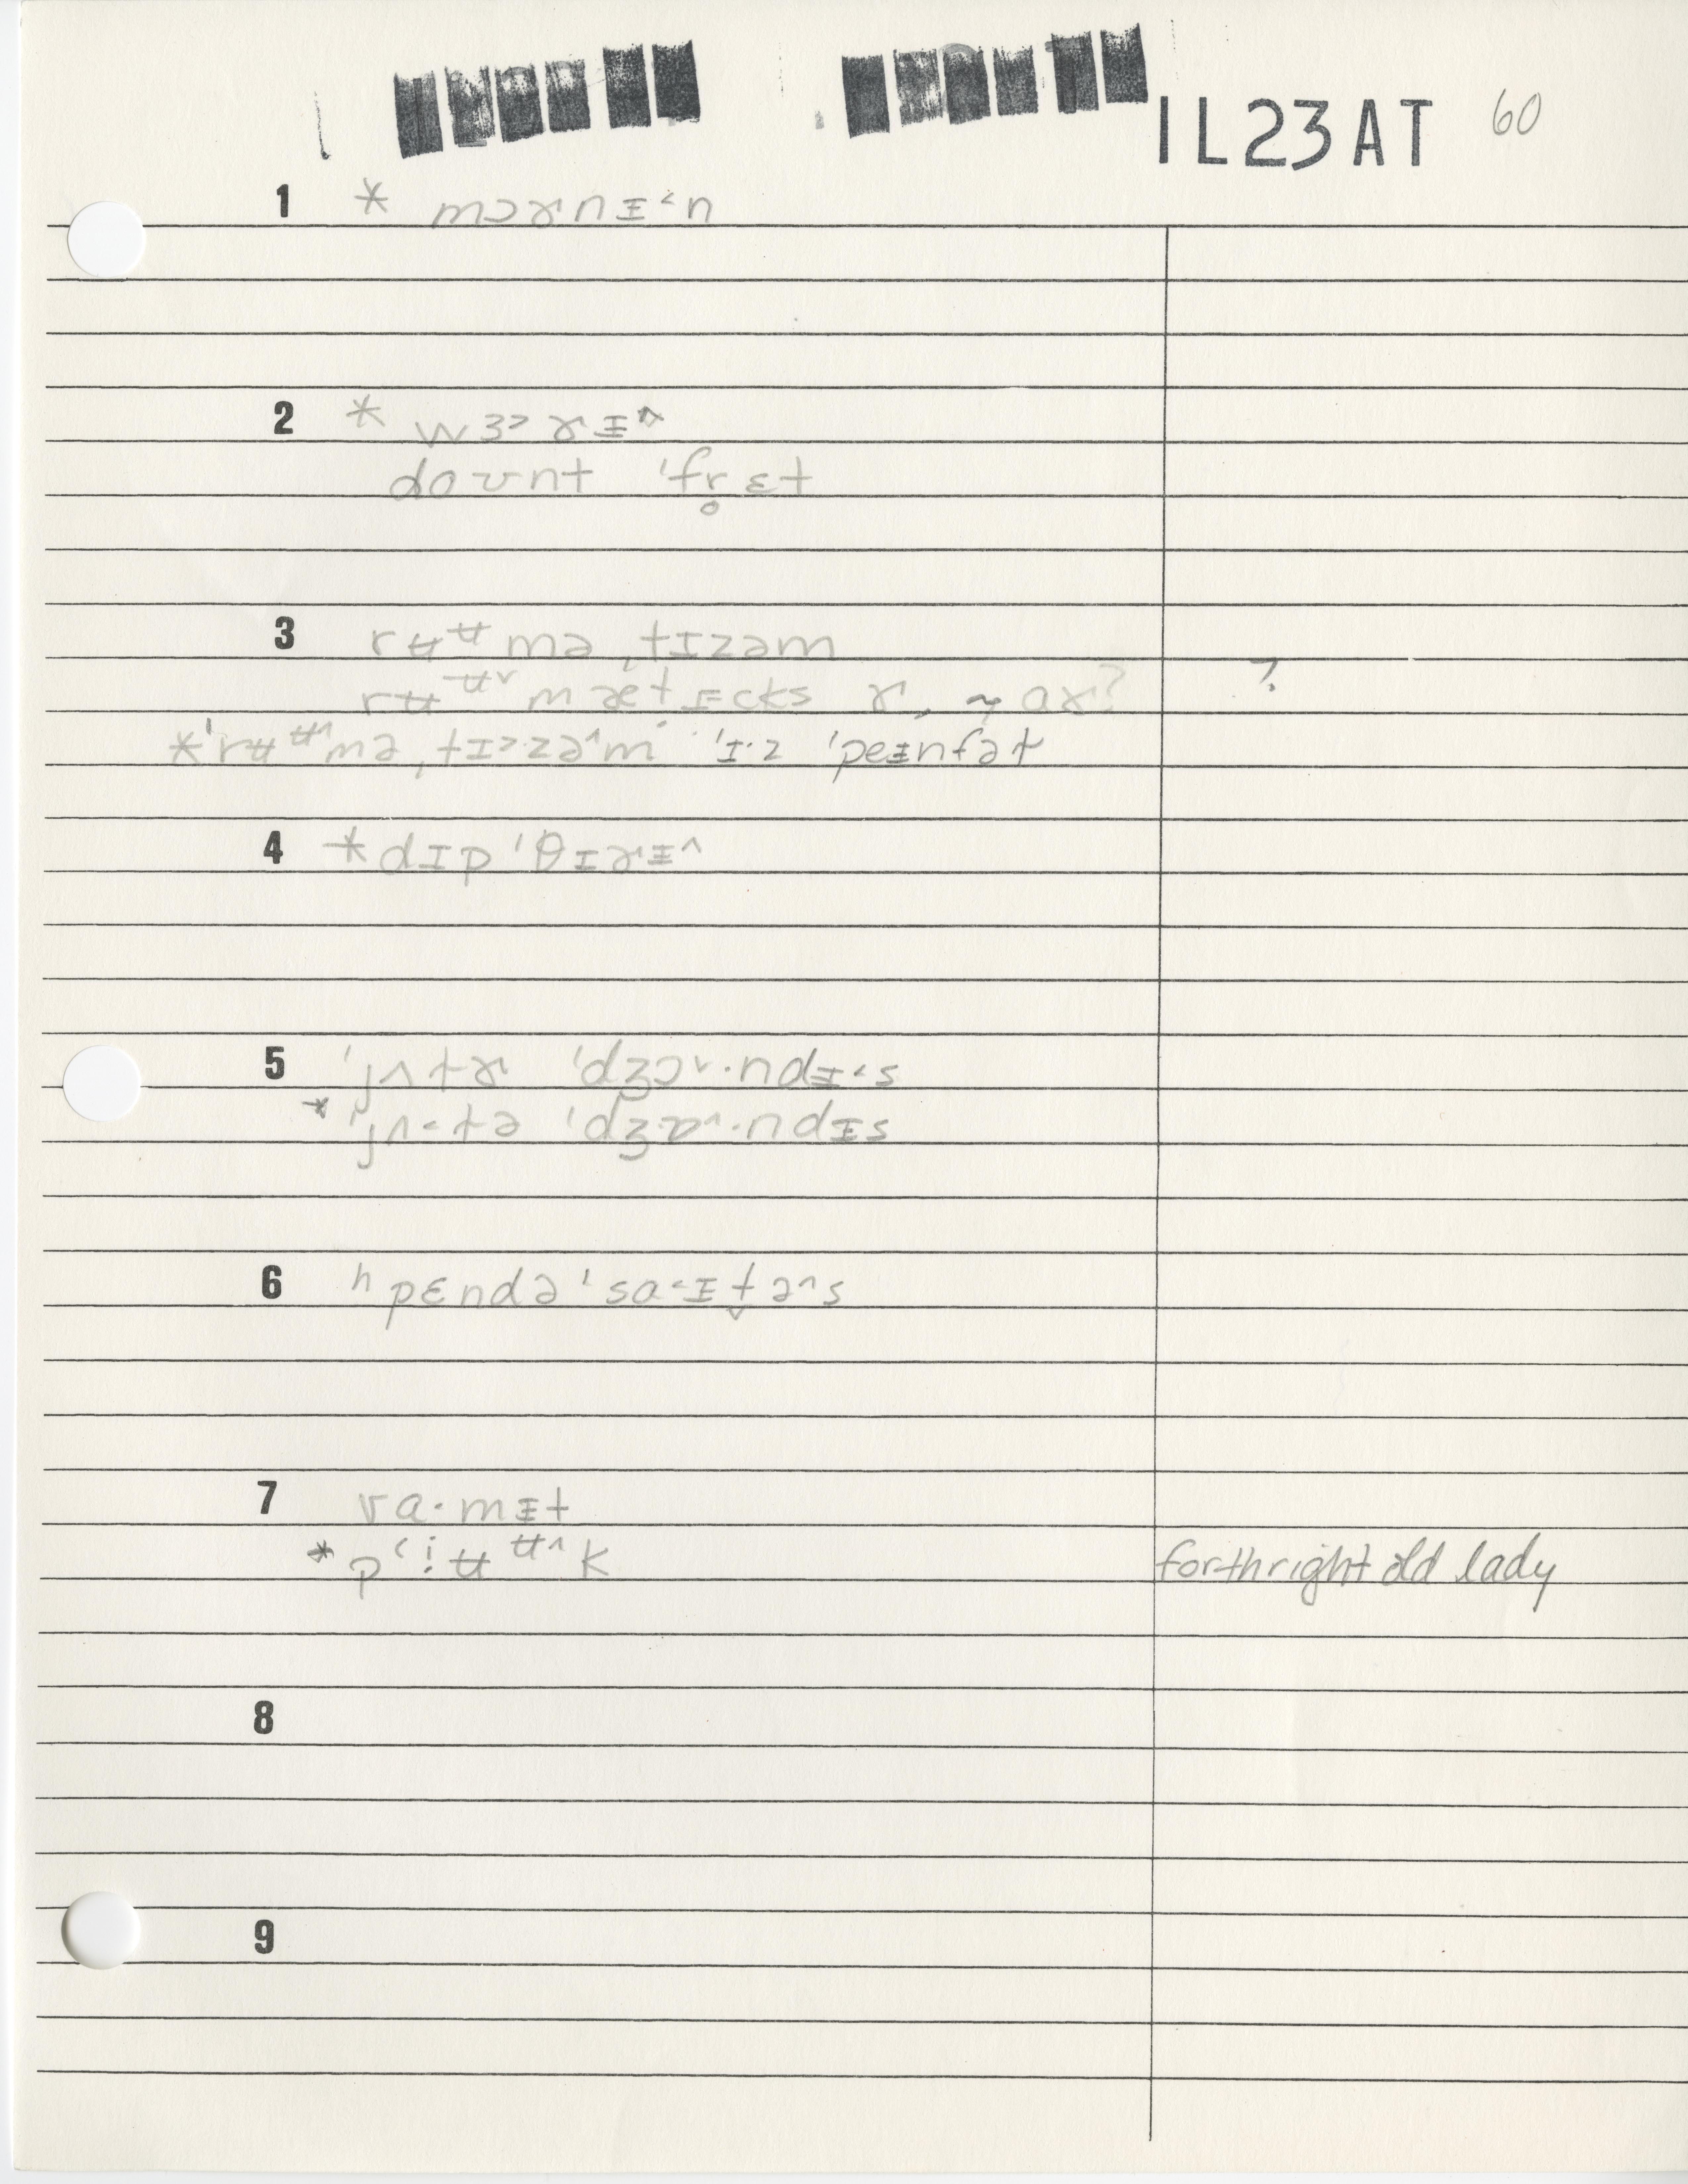 IL23AT 60
1 * mɔɚnɪ˂n
2 * wɜ˃ɚɪ^
doʊnt ˈfr̥ɛt
3 rʉᵾmə ˌtɪzəm
rʉᵾ˅mætɪcks ɚ, ~ aɚ? ?
*ˈrʉᵾ^mə ˌtɪ˃zə^m ˈɪ·z ˈpeɪnfət
4 * dɪpˈθɪɚɪ^
5 ˈjʌtɚ ˈdʒɔ˅·ndɪ˂s
* ˈjʌ˂tə ˈdʒɒ^·ndɪs
6 ʰpɛndəˈsa˂ɪt̬ə^s
7 va·mɪt
* pʻi̤ʉᵾ^k forthright old lady
8
9